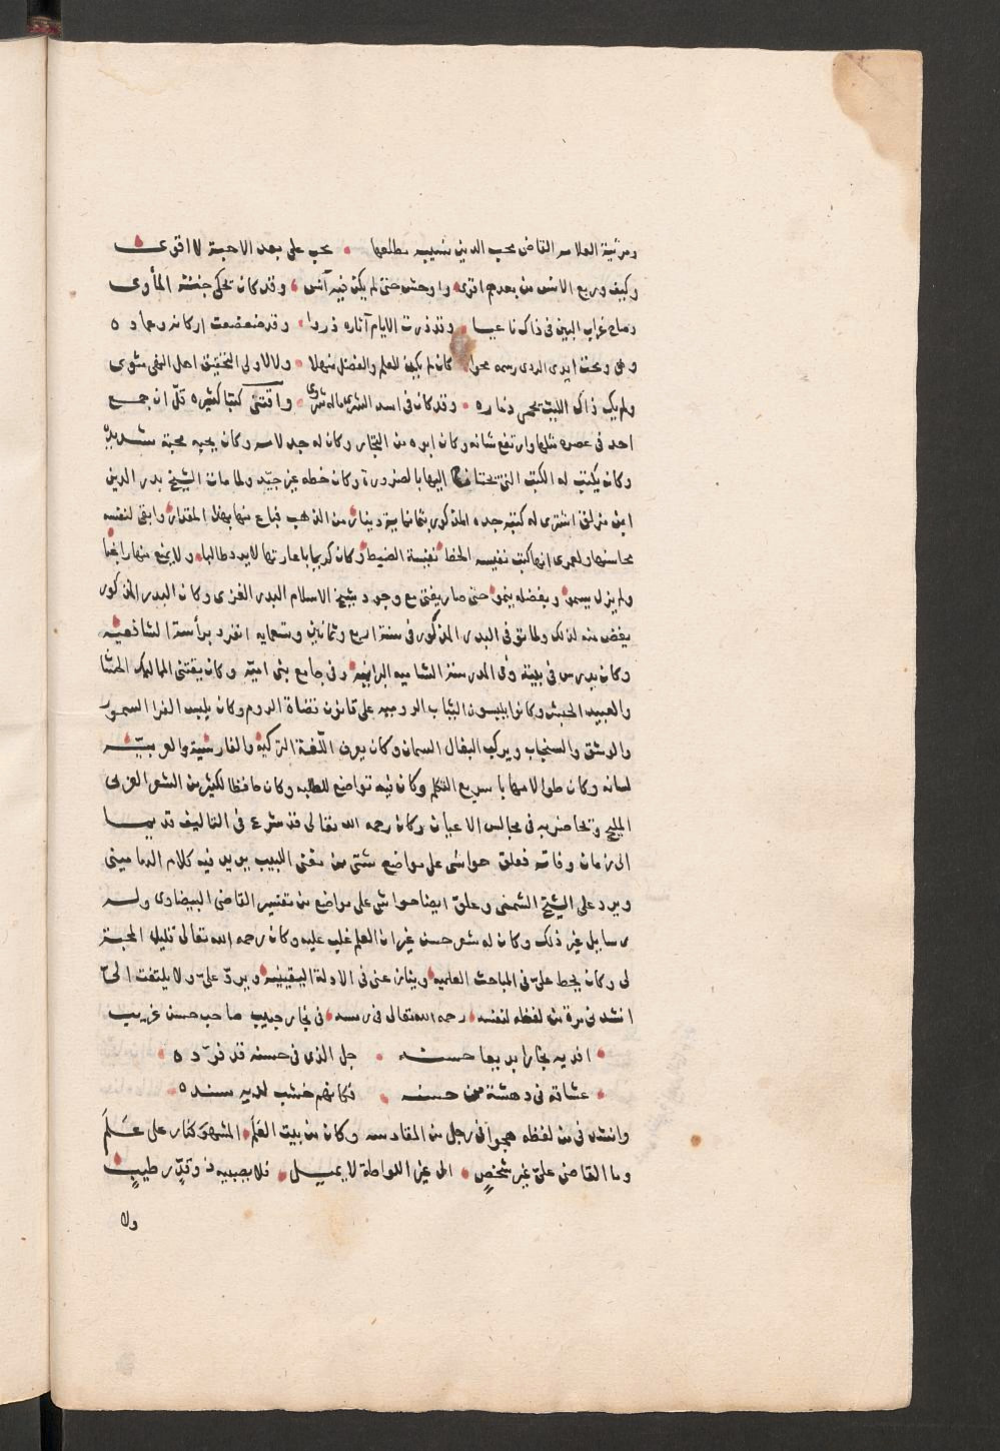 ومرثية العلامه القاضى محب الدين نسيب مطلعها • محب على بعد الاحبة لا اقوى
وكيف وربع الانس من بعدهم اقوى • واوحش حتى لم يكن فيه آنس • وقد كان تحكى جنة المأوى
وصاح غراب البين فى ذاك ناعيا • وقد ذرت الايام آثاره ذروا • وقد ضعضعت اركانه
ومحت ايدى الردى رسمه محوا كان لم يكن للعلم والفضل منهلا • ولا لاولى التحقيق اهل التقى مثوى
ولم يك ذاك الليث يحمى دماره • وقد كان فى اسد الشرى ماله شروى • واقتنى كتبا كثيره قلّ ان جمع
احد فى عصره مثلها وارتفع شانه وكان ابوه من التجار وكان له جد لامه وكان يحبه محبة شديدة
وكان يكتب له الكتب التى يحتاج اليها بالضرورة وكان خطه غير جيّد ولما مات الشيخ بدر الدين
ابن مزلق اشترى له كتبه جده المذكور بثمانماية دينار من الذهب فباع منها بهذا المقدار وابقى لنفسه
محاسنها ولعمرى انها كتب نفيسه الخط نفيسة الضبط وكان كريما باعارتها لا يرد طالبا • ولا يمنع منها راغبا
ولم يزل يسمو وبفضله ينمو حتى صار يفتى مع وجود شيخ الاسلام البدر الغزى وكان البدر المذكور
يغض منه لذلك ولما توفى البدر المذكور فى سنة اربع وثمانين وتسعمايه انفرد برأسة الشافعية
وكان يدرس فى بيته وفى المدرسة الشاميه البرانيه وفى جامع بنى اميّه وكان يقتنى المماليك الحسان
والعبيد الحبش وكانوا يلبسون الثياب الروميه على قانون قضاة الروم وكان يلبس الفرا السمور
والوشق والسنجاب ويركب البغال السمان وكان يعرف اللّغة التركية والفارسية والعربيّة
لسانه وكان طوالا مهابا سريع التكلم وكان فيه تواضع للطلبه وكان حافظا لكثير من الشعر العربى
المليح ويحاضر به فى مجالس الاعيان وكان رحمه الله تعالى قد شرع فى التاليف قديما
الى زمان وفاته فعلق حواشى على مواضع شتى من مغنى اللبيب يريد فيه كلام الدمامينى
ويرد على الشيخ الشمنى وعلق ايضا حواشى على مواضع من تفسير القاضى البيضاوى وله
رسايل غير ذلك وكان له شعر حسن غير ان العلم غلب عليه وكان رحمه الله تعالى قليل المحبة
لى وكان يحط علىّ فى المباحث العلميه وينازعنى فى الادلة اليقينيه ويردّ علىّ ولا يلتفت الىّ
انشدنى مرة من لفظه لنفسه • رحمه الله تعالى فى رمسه • فى نجار حبيب صاحب حسن غريب
• افديه نجارا بديعا حسنه • جل الذى فى حسنه قد فرّده •
• عشاقه فى دهشة من حسنه • فكانهم خشب لديه مسنده •
وانشدنى من لفظه هجوا فى رجل من المقادسه وكان من بيت العَلَم • المشهور كنار على عَلَمَ
وما القاضى علىّ غير شخصٍ • الى غير اللواطة لا يميل • فلا يصبيه
ولا